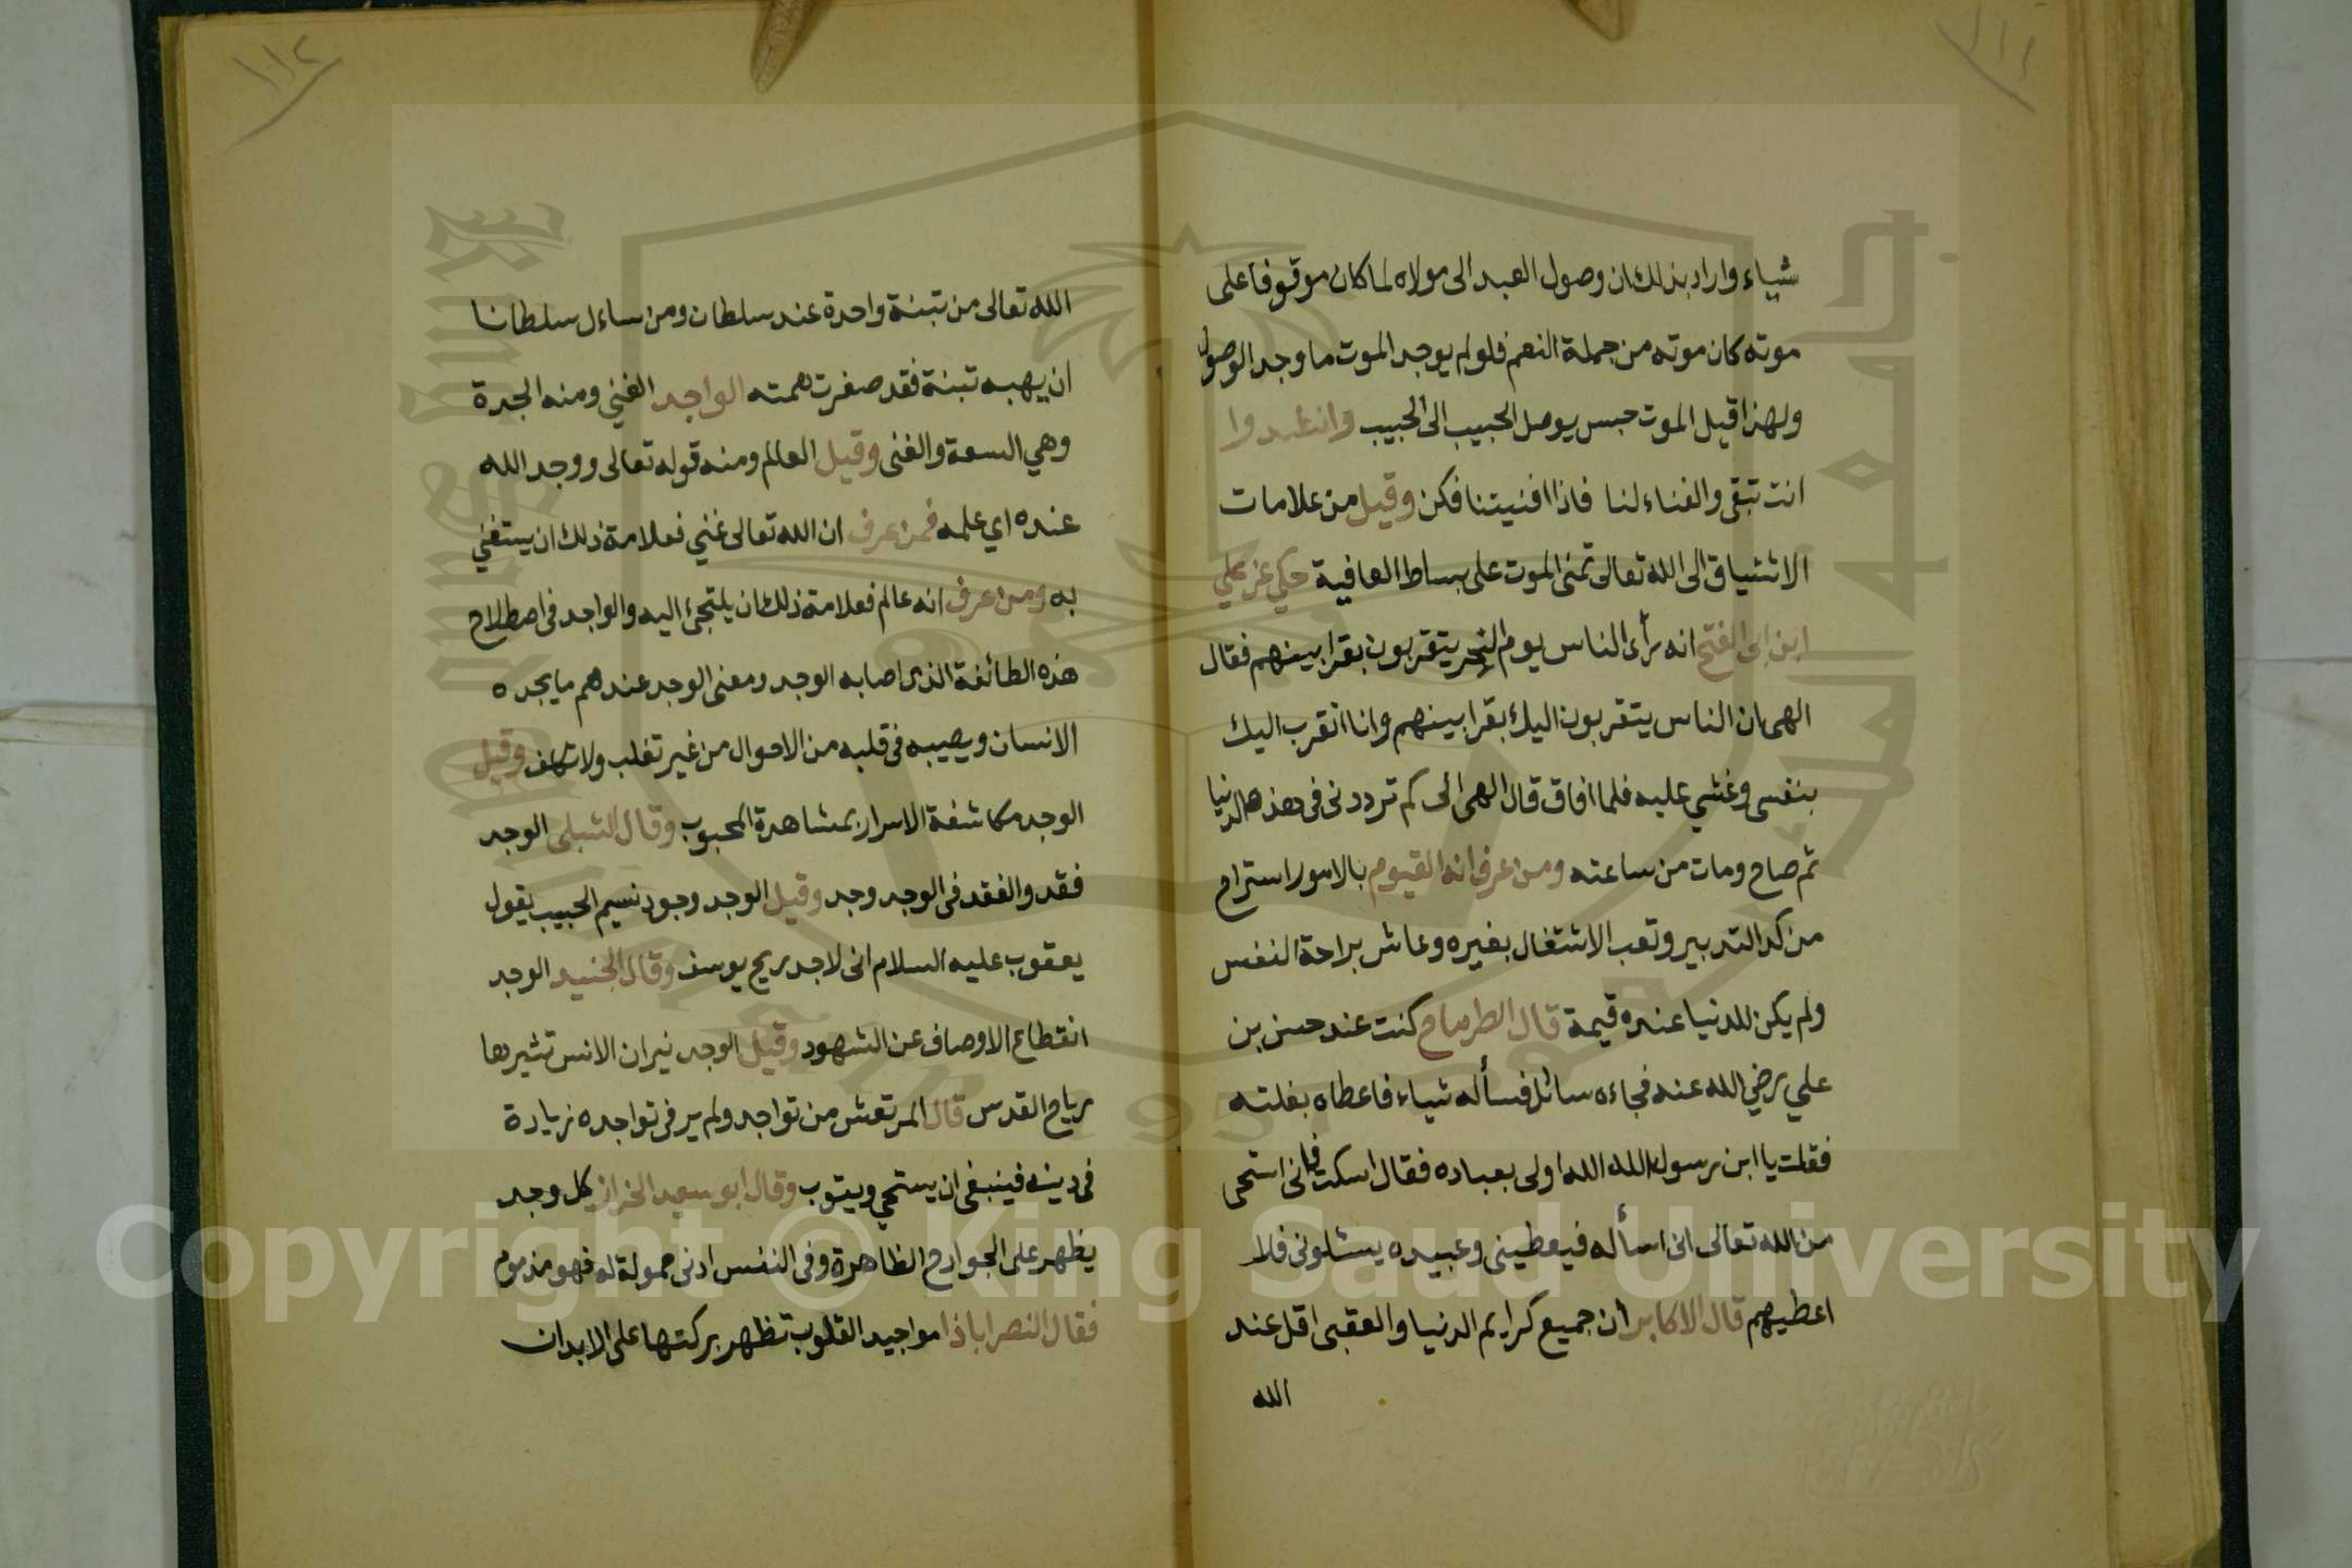 ١١١
شياء واراد بذلك ان وصول العبد الى مولاه لما كان موقوفا على
موته كان موته من جملة النعم فلو لم يوجد الموت ما وجد الوصول
ولهذا قيل الموت جسر يوصل الحبيب الى الحبيب وانشدوا
انت تبقى والفناء لنا فاذا افنيتنا فكن وقيل من علامات
الاشتياق الى الله تعالى تمنى الموت على بساط العافية حكي عن علي
ابن ابى الفتح انه رأى الناس يوم النحر يتقربون بقرابينهم فقال
الهى ان الناس يتقربون اليك بقرابينهم وانا اتقرب اليك
بنفسى وغشي عليه فلما افاق قال الهى الى كم ترددنى فى هذه الدنيا
ثم صاح ومات من ساعته ومن عرف انه القيوم بالامور استراح
من كد التدبير وتعب الاشتغال بغيره وعاش براحة النفس
ولم يكن للدنيا عنده قيمة قال الطرماح كنت عند حسن بن
علي رضي الله عنه فجاءه سائل فسأله شياء فاعطاه بغلته
فقلت يا ابن رسول الله الله اولى بعباده فقال اسكت فانى استحى
من الله تعالى انى اسأله فيعطينى وعبيده يسئلونى فلا
اعطيهم قال الاكابر ان جميع كرايم الدنيا والعقبى اقل عند
الله
١١٢
الله تعالى من تبنة واحدة عند سلطان ومن ساءل سلطانا
ان يهبه تبنة فقد صغرت همته الواجد الغني ومنه الجدة
وهي السعة والغنى وقيل العالم ومنه قوله تعالى ووجد الله
عنده اي علمه فمن عرف ان الله تعالى غني فعلامة ذلك ان يستغني
به ومن عرف انه عالم فعلامة ذلك ان يلتجئ اليه والواجد فى اصطلاح
هذه الطائفة الذى اصابه الوجد ومعنى الوجد عندهم ما يجده
الانسان ويصيبه فى قلبه من الاحوال من غير تغلب ولا تكلف وقيل
الوجد مكاشفة الاسرار بمشاهدة المحبوب وقال الشبلى الوجد
فقد والفقد فى الوجد وجد وقيل الوجد وجود نسيم الحبيب يقول
يعقوب عليه السلام انى لاجد ريح يوسف وقال الجنيد الوجد
انقطاع الاوصاف عن الشهود وقيل الوجد نيران الانس تثيرها
رياح القدس قال المرتعش من تواجد ولم ير فى تواجده زيادة
فى دينه فينبغى ان يستحي ويتوب وقال ابو سعيد الخراز كل وجد
يظهر على الجوارح الظاهرة وفى النفس ادنى حمولة له فهو مذموم
فقال النصراباذا مواجيد القلوب تظهر بركتها على الابدان
Copyright © King Saud University